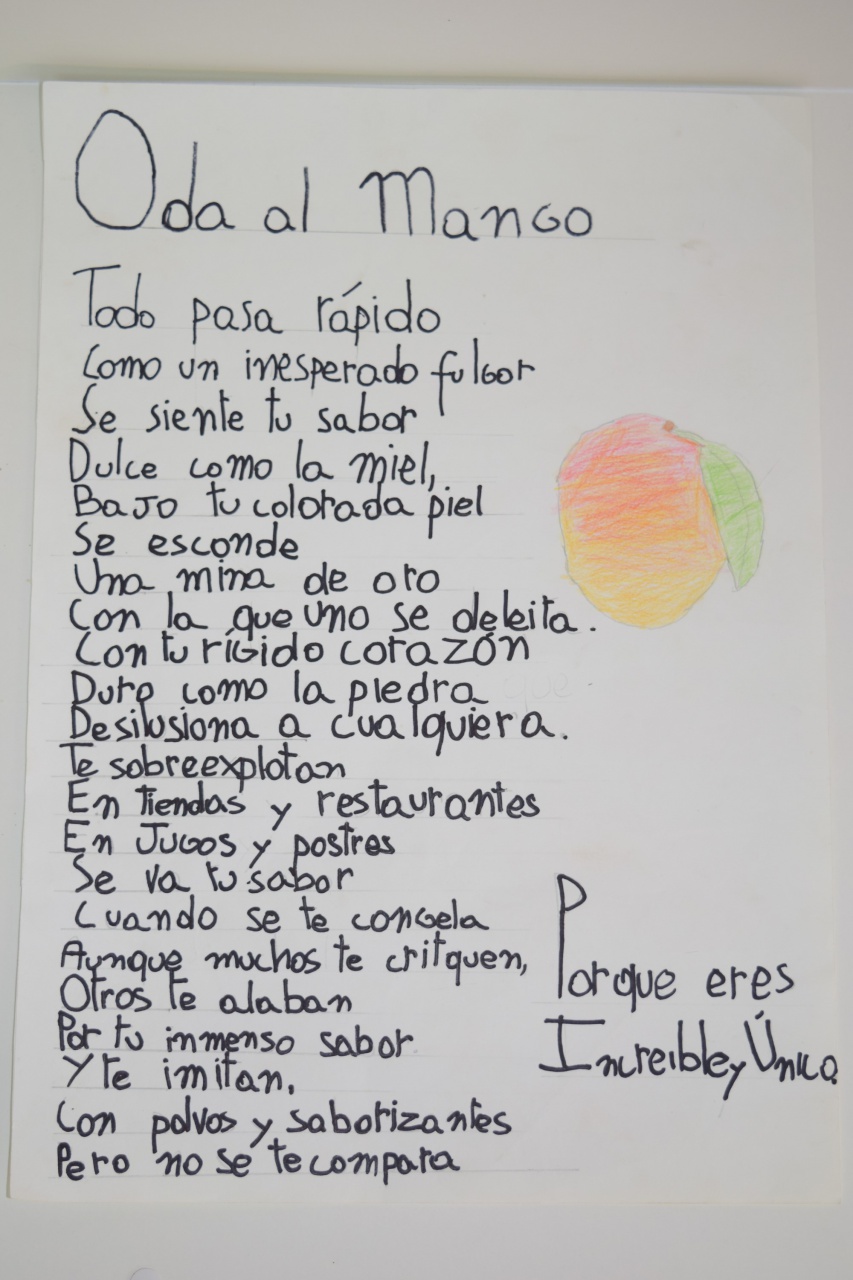 Oda al Mango
Todo pasa rápido
Como un inesperado fulgor
Se siente tu sabor
Dulce como la miel,
Bajo tu colorada piel
Se esconde
Una mina de oro
Con la que uno se deleita.
Con tu rígido corazón
Duro como la piedra
Desilusiona a cualquiera.
Te sobreexplotan
En tiendas y restaurantes
En Jugos y postres
Se va tu sabor
Cuando se te congela
Aunque muchos te critquen,
Otros te alaban
Por tu immenso sabor
Y te imitan.
Con polvos y saborizantes
Pero no se te compara
Porque eres
Increible y Único